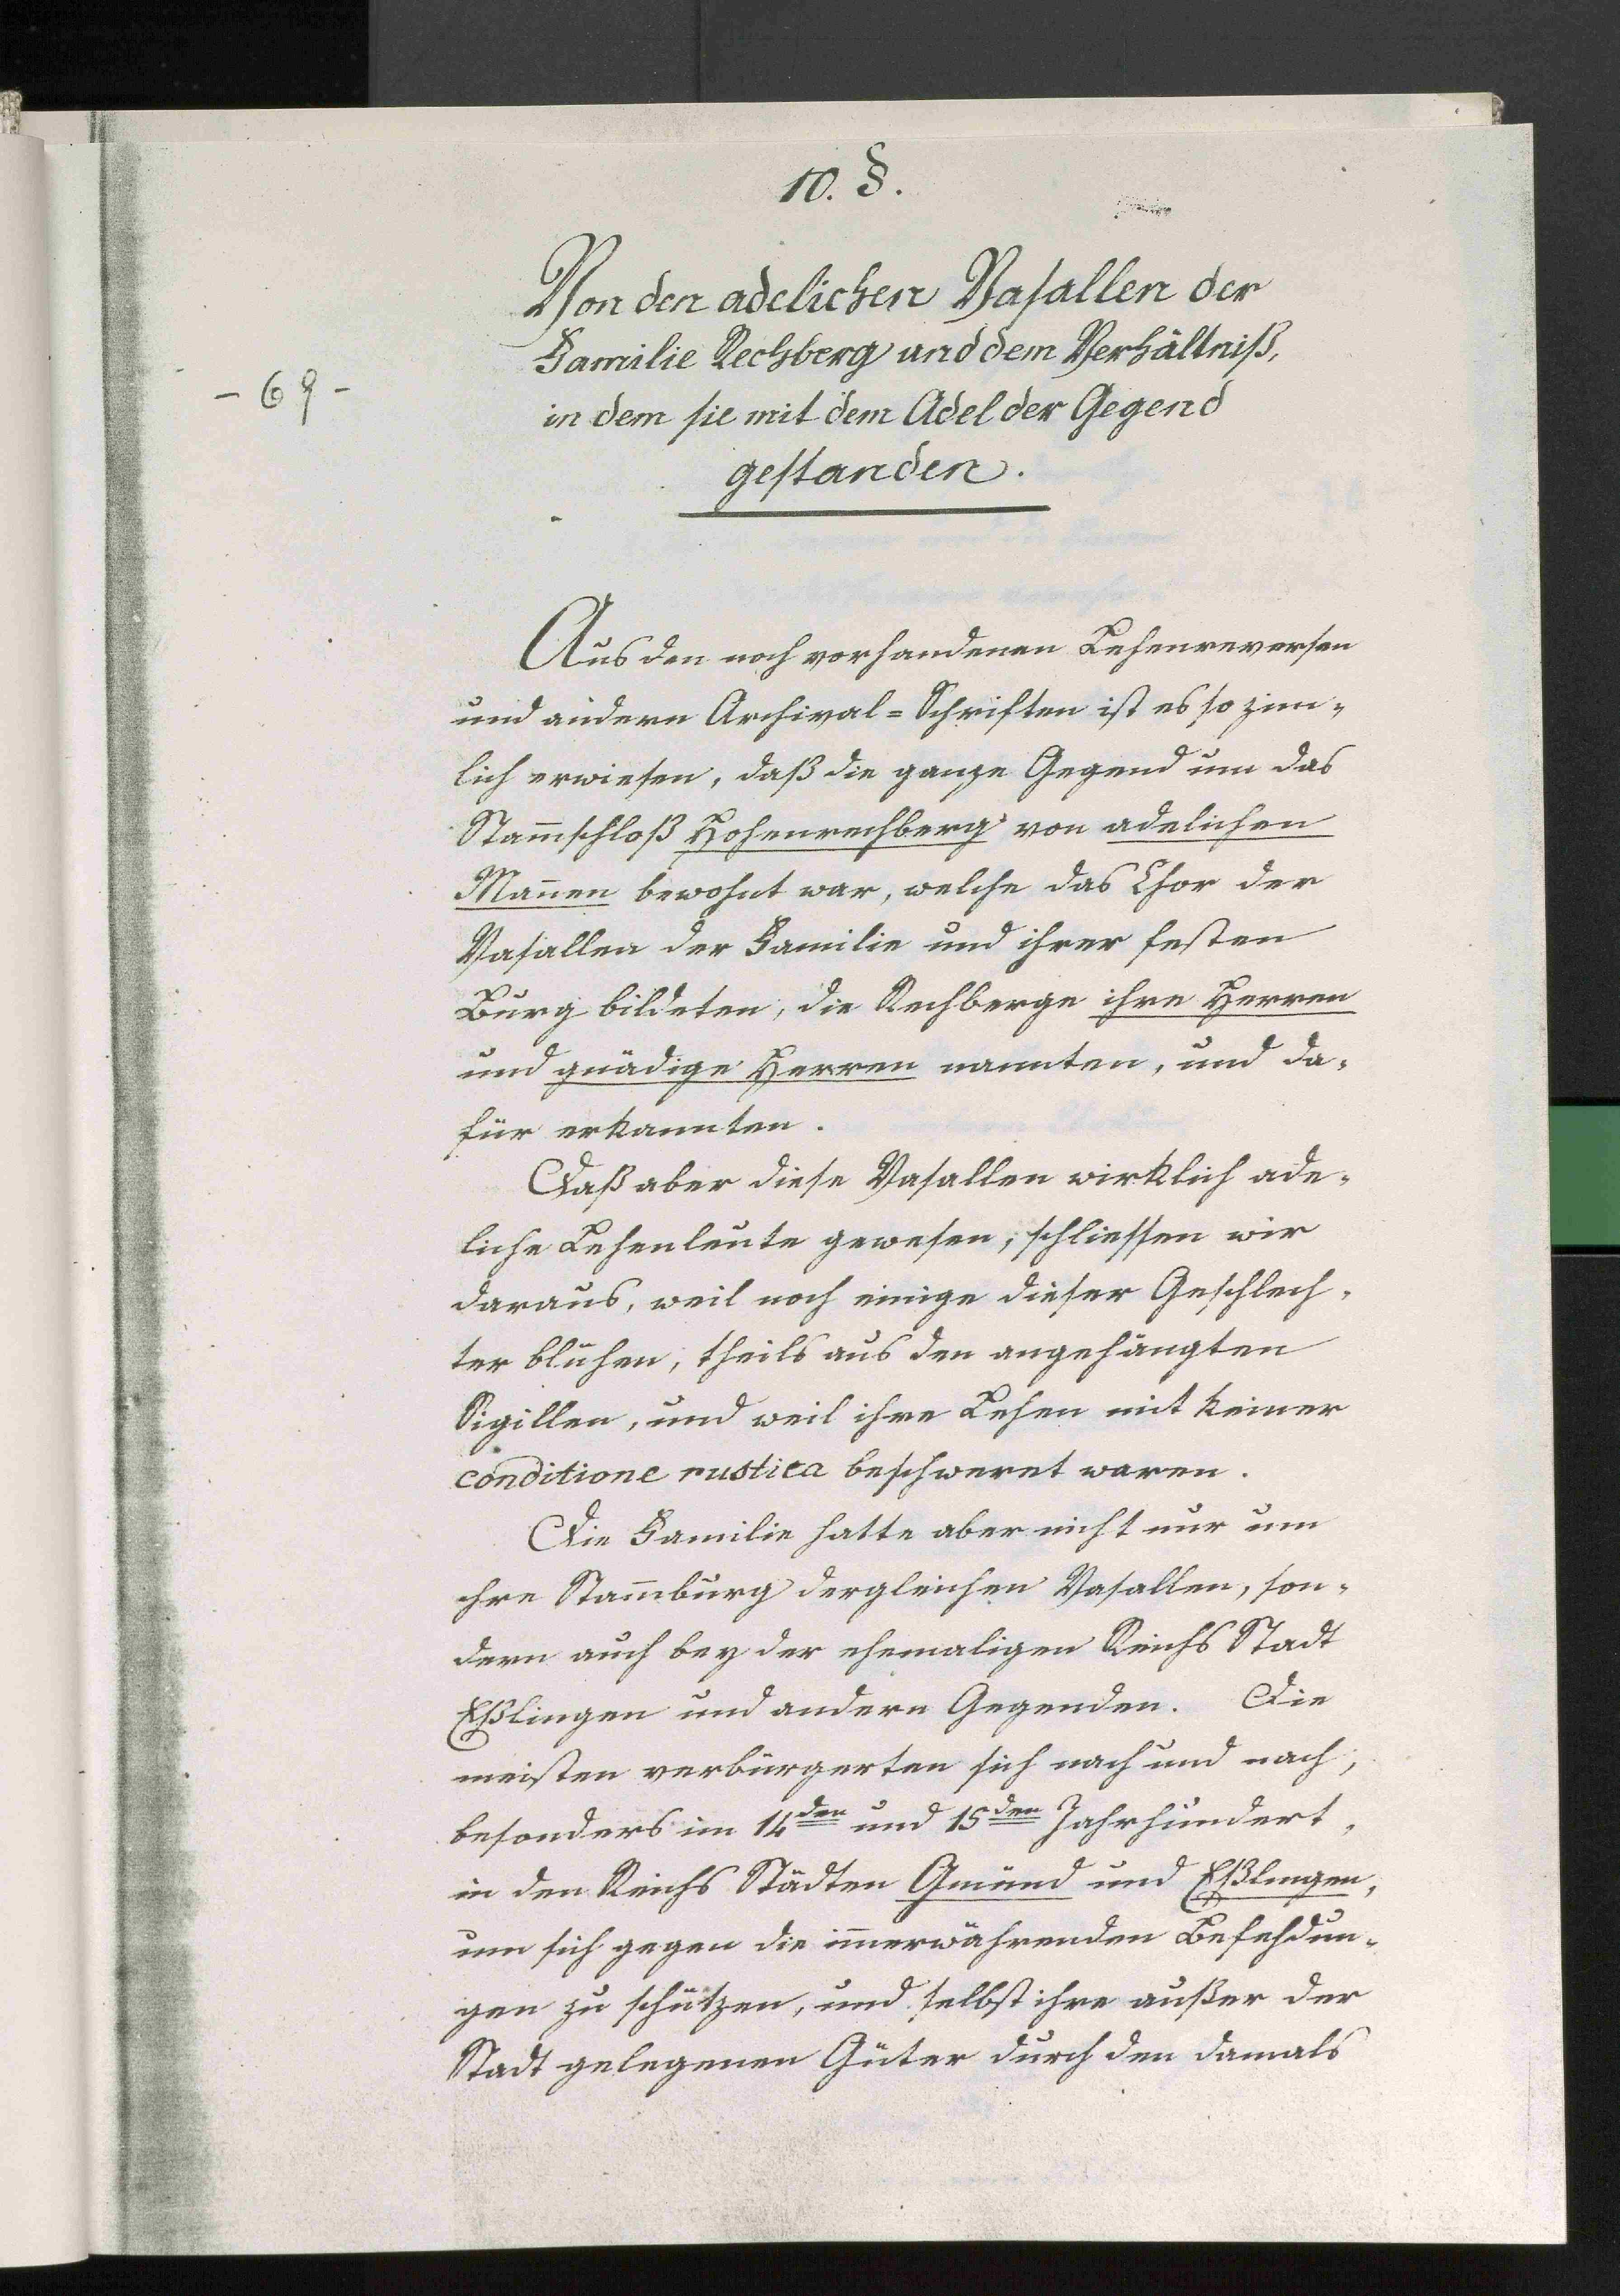 10. §.
Von den adelichen Vasallen der
Familie Rechberg und dem Verhältniß,
- 69 -
in dem sie mit dem Adel der Gegend
gestanden.
Aus den noch vorhandenen Lehenreversen
und andern Archival=Schriften ist es so zim-
lich erwiesen, daß die ganze Gegend um das
Stam̅schloß Hohenrechberg von adelichen
Man̅en bewohnt war, welche das Chor der
Vasallen der Familie und ihrer festen
Burg bildeten, die Rechberge ihre Herren
und gnädige Herren nannten, und da-
für erkannten.
Daß aber diese Vasallen wirklich ade-
liche Lehenleute gewesen, schliessen wir
daraus, weil noch einige dieser Geschlech-
ter blühen, theils aus den angehängten
Sigillen, und weil ihre Lehen mit keiner
conditione rustica beschweret waren.
Die Familie hatte aber nicht nur um
ihre Stam̅burg dergleichen Vasallen, son-
dern auch bey der ehemaligen Reichs Stadt
Eßlingen und andern Gegenden. Die
meisten verbürgerten sich nach und nach,
besonders im 14den und 15den Jahrhundert,
in den Reichs Städten Gmünd und Eßlingen,
um sich gegen die im̅erwährenden Befehdun-
gen zu schützen, und selbst ihre außer der
Stadt gelegenen Güter durch den damals